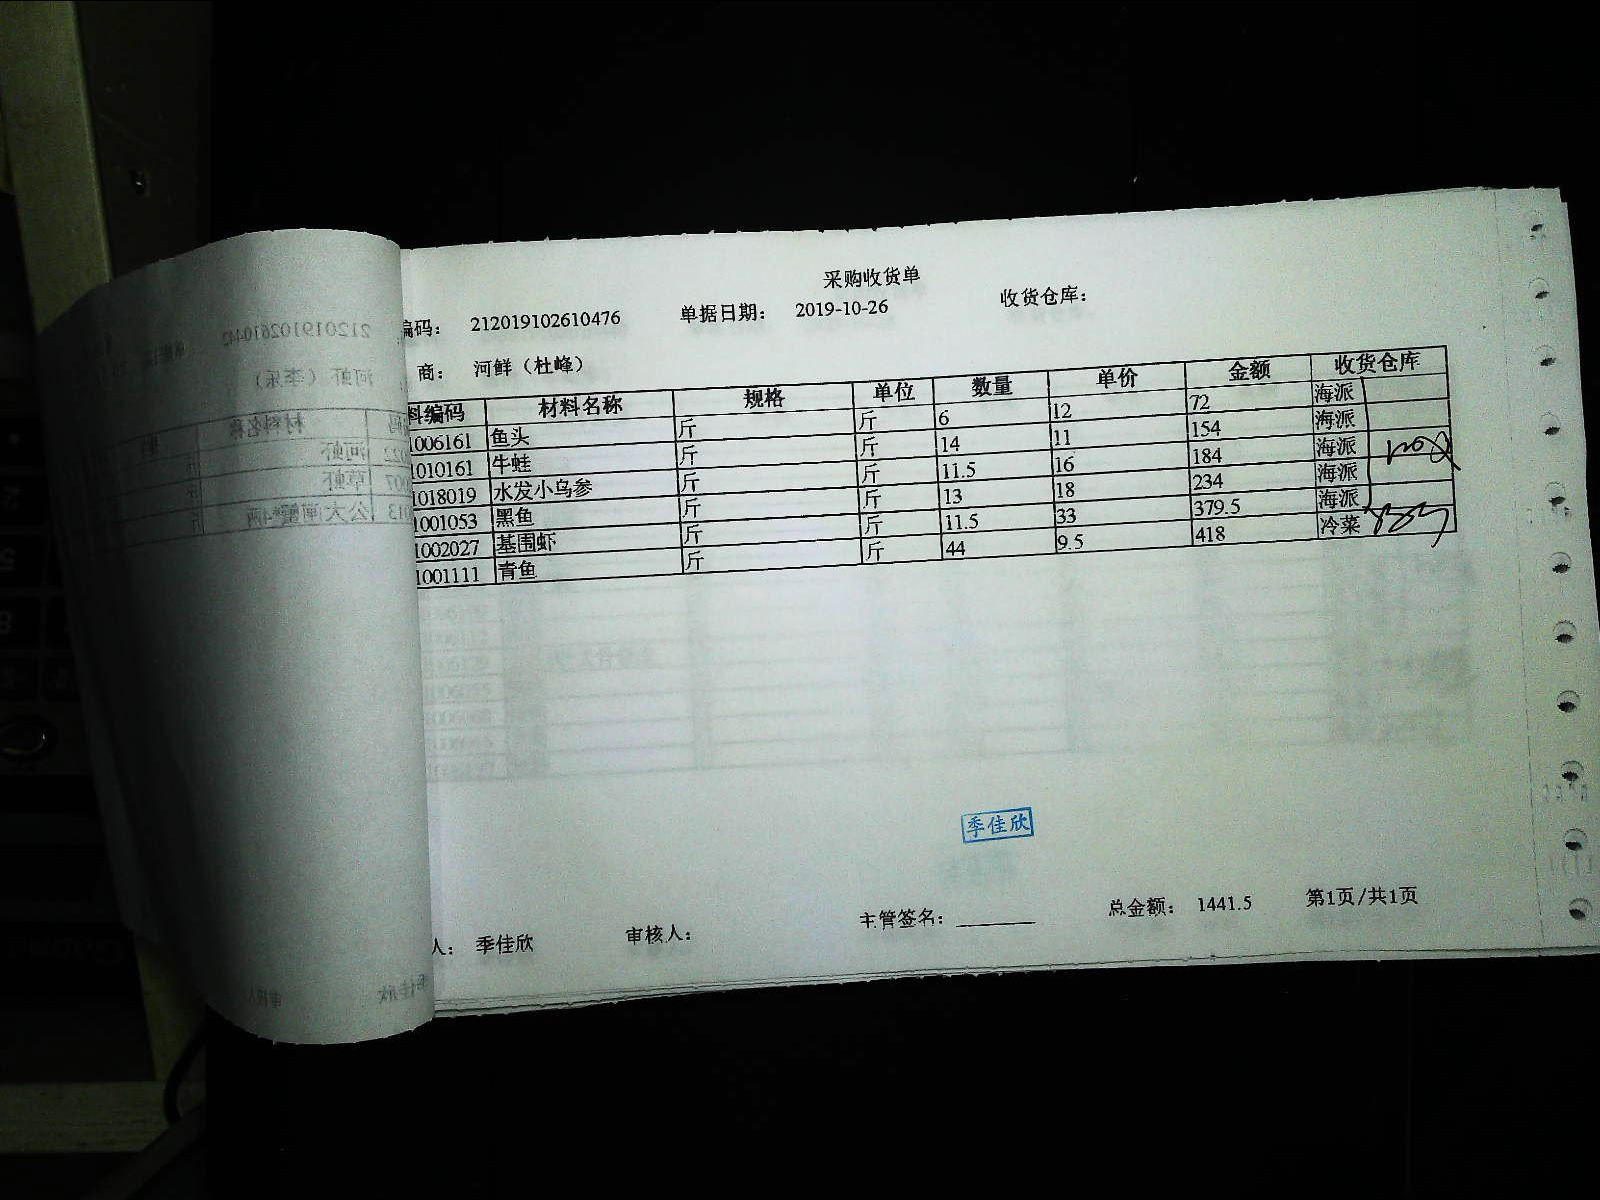 采购收货单
编码： 212019102610476 单据日期： 2019-10-26 收货仓库：
商： 河鲜（杜峰）
料编码 材料名称 规格 单位 数量 单价 金额 收货仓库
1006161 鱼头 斤 斤 6 12 72 海派
1010161 牛蛙 斤 斤 14 11 154 海派
1018019 水发小乌参 斤 斤 11.5 16 184 海派
1001053 黑鱼 斤 斤 13 18 234 海派
1002027 基围虾 斤 斤 11.5 33 379.5 海派
1001111 青鱼 斤 斤 44 9.5 418 冷菜
季佳欣
人： 季佳欣 审核人： 主管签名： 总金额： 1441.5 第1页/共1页
212019102610442
河虾（李乐）
材料名称
河虾
草虾
公大闸蟹4两
季佳欣